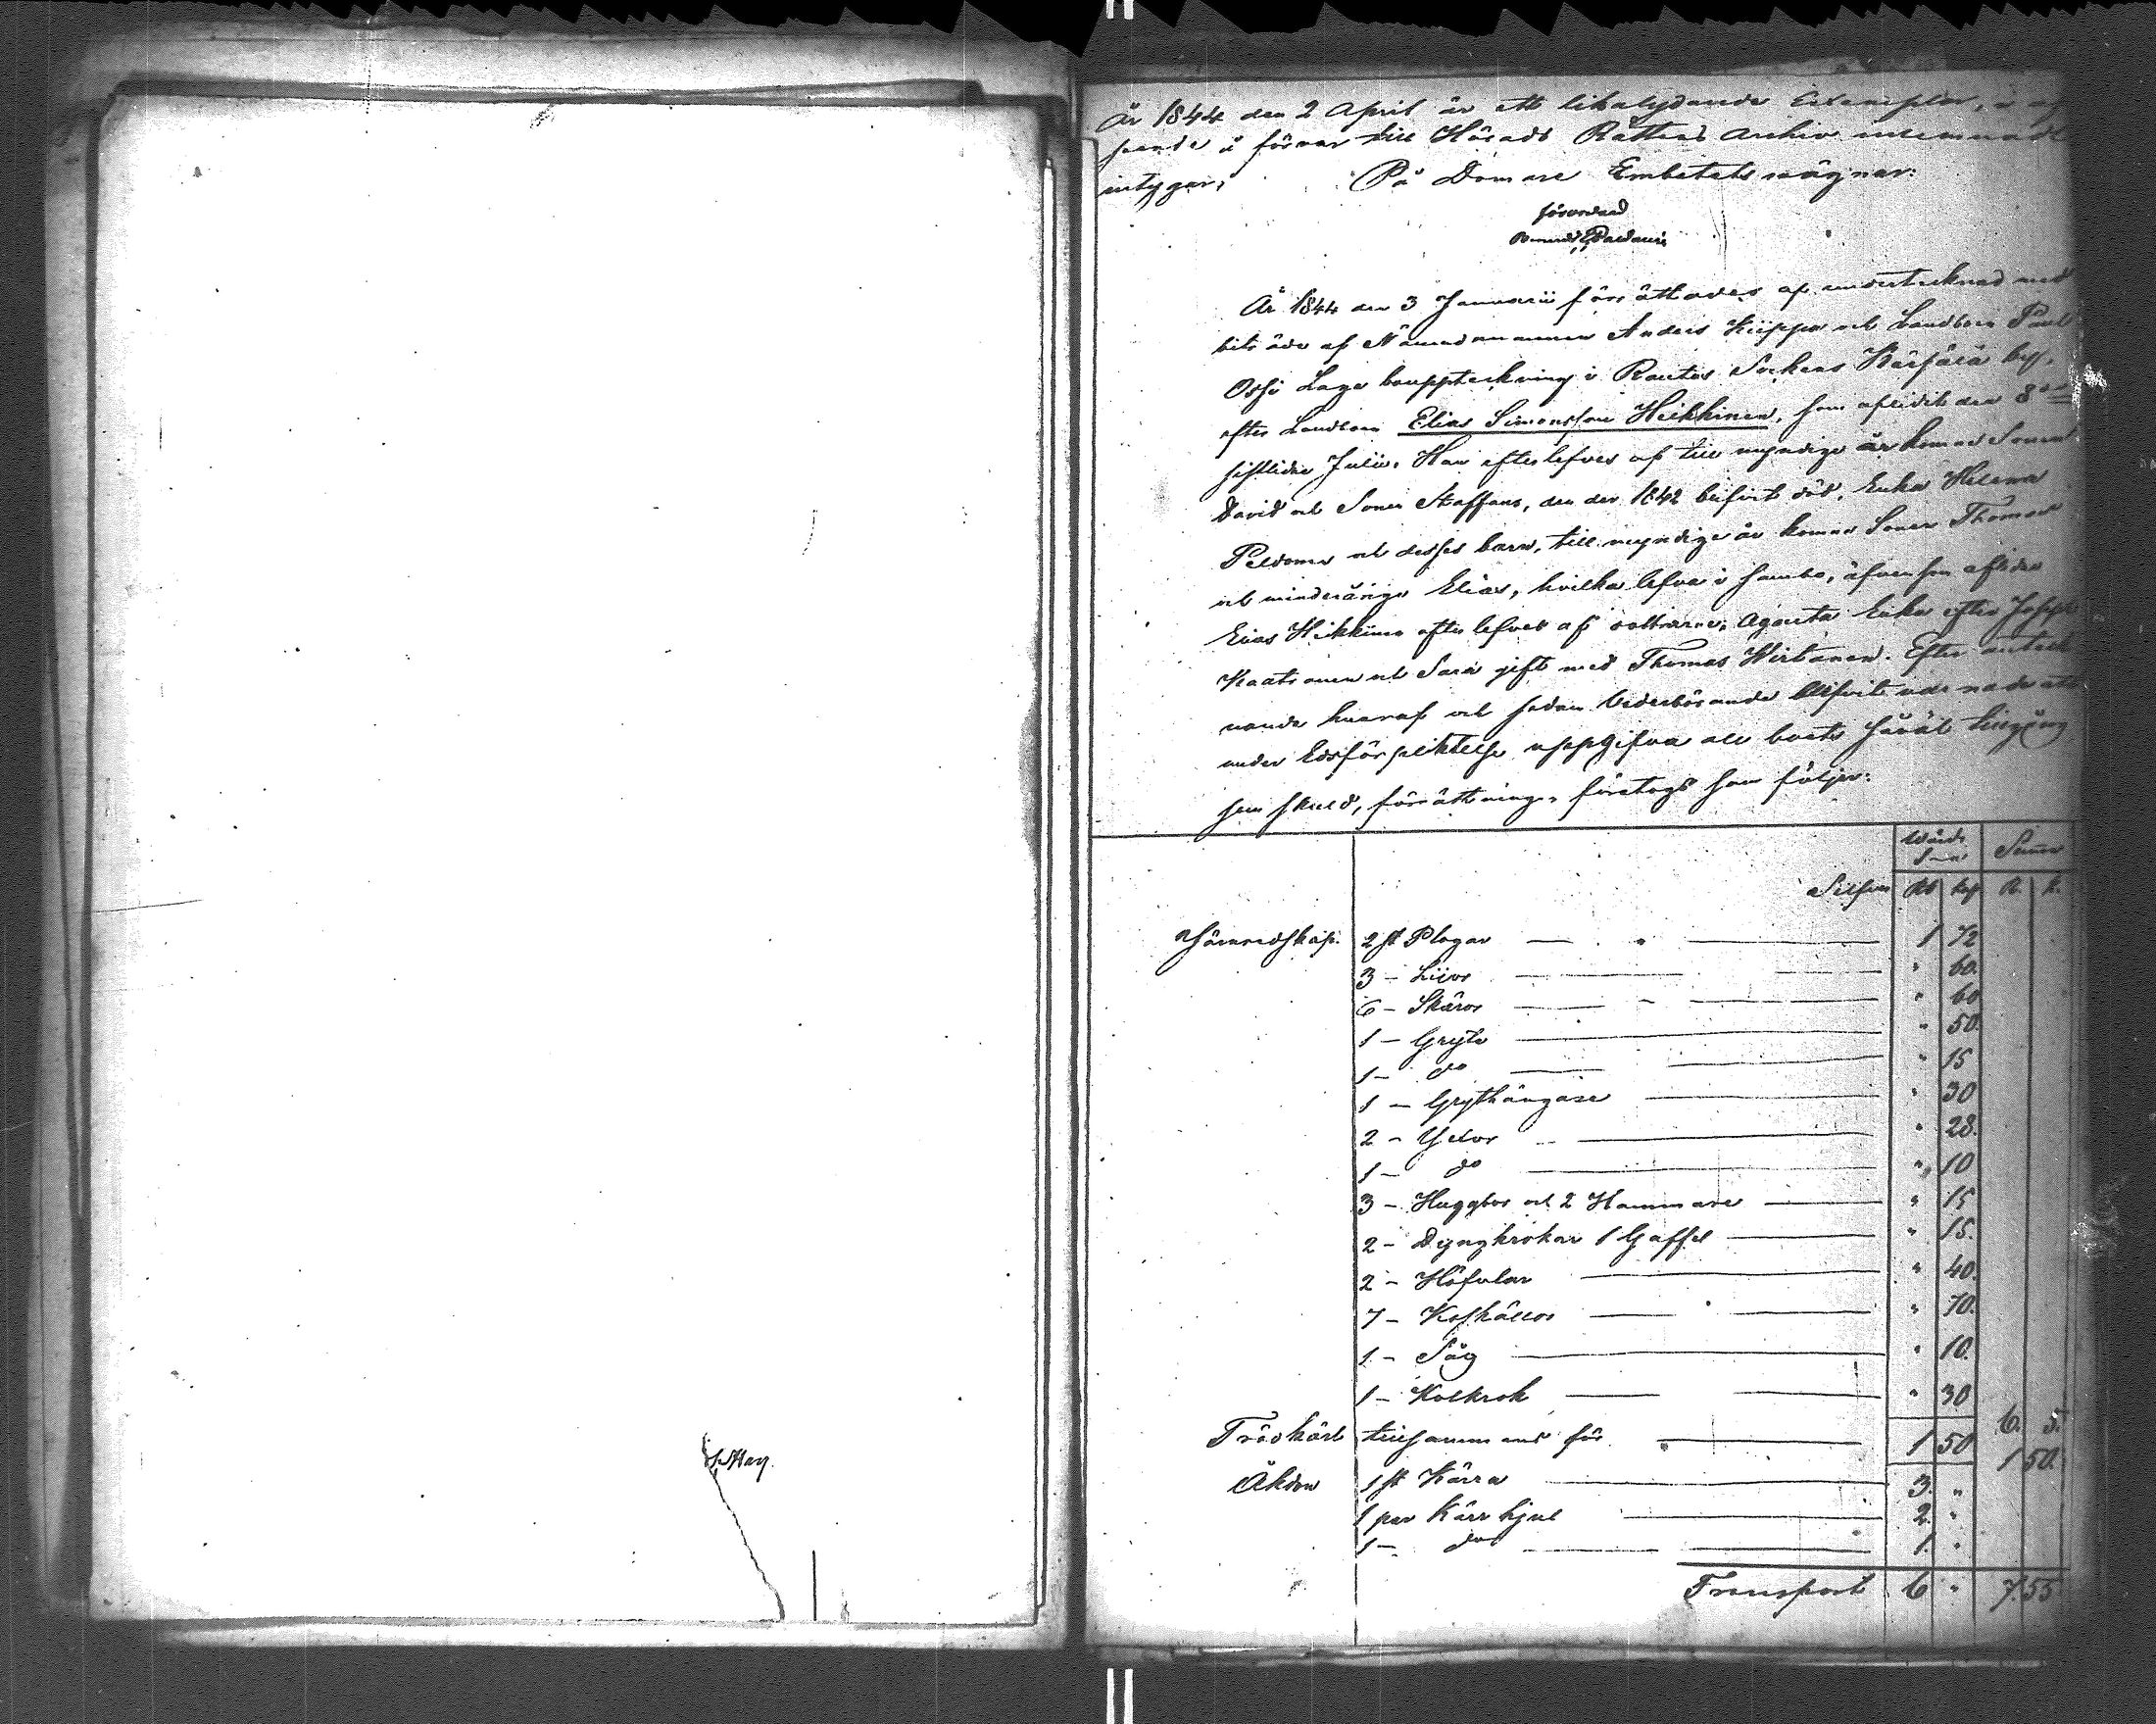 År 1844 den 2 April är ett likalydande Exemplar,
till Härads Rättens Archiv inlemnadt
intygar; På Domare Embetets vägnar:
förordnad
År 1844 den 3 Januarii förrättades af undertecknad med
biträde af Nämndemannen Anders Kiippa och Landbon Paul
Ossi Laga bouppteckning i Rautus Sockens by,
efter Landbon Elias Simonsson Heikkinen, som aflidit den 8de
sistlidne Julii. Han efterlefves af till myndige år komne Sonen
David och Sonen Staffans, den der 1842 blifvit död, Enka Helena
och desses barn, till myndige år komne Sonen Thomas
och minderårige Elias, hvilka lefva i sambo, äfvensom aflidne
Elias Heikkinen efterlefves af döttrarne, Agneta Enka efter Joseph
och Sara gift med Thomas Hirtanen. Efter anteck
nande häraf och sedan Vederbörande blifvit
under Edsförpliktelse uppgifva all boets såväl tillgång
som skuld, förrättningen företogs som följer:
Värde Summa
Silfver Rb kop R. k.
Järnredskap. 2 st Plogar — 1 72
3 – Liior — " 60.
6 – Skäror — " 60
1 – Gryta — " 50.
1 – do — " 15
1 – Grythängare — " 30
2 – Yxor — " 28.
1 – do — " 10
3 – Huggbor och 2 Hammare — " 15
2 – Dyngkrokar 1 Gaffel — " 15.
2 – Höfvlar — " 40.
7 – Koskällor — " 70.
1 – Såg — " 10.
1 – Kolkrok — " 30 6. 5.
Trädkärl tillsammans för — 1 50 1 50.
Åkdon 1 st Kärra — 3. "
1 par Kärr hjul — 2. "
1 – do — 1. "
Transport 6 " 7. 55